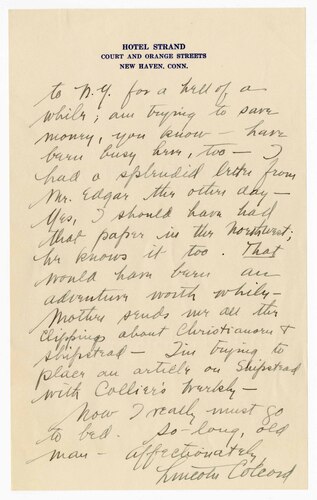 HOTEL STRAND
COURT AND ORANGE STREETS
NEW HAVEN, CONN.
to N.Y. for a hell of a
while; am trying to save
money, you know — have
been busy here, too — I
had a splendid letter from
Mr. Edgar the other day —
Yes, I should have had
that paper in the Northwest;
he knows it too. That
would have been an
adventure worth while —
Mother sends me all the
clippings about Christianson &
Shipstead — I'm trying to
place an article on Shipstead
with Collier's Weekly —
Now I really must go
to bed. So-long, old
man — affectionately,
Lincoln Colcord